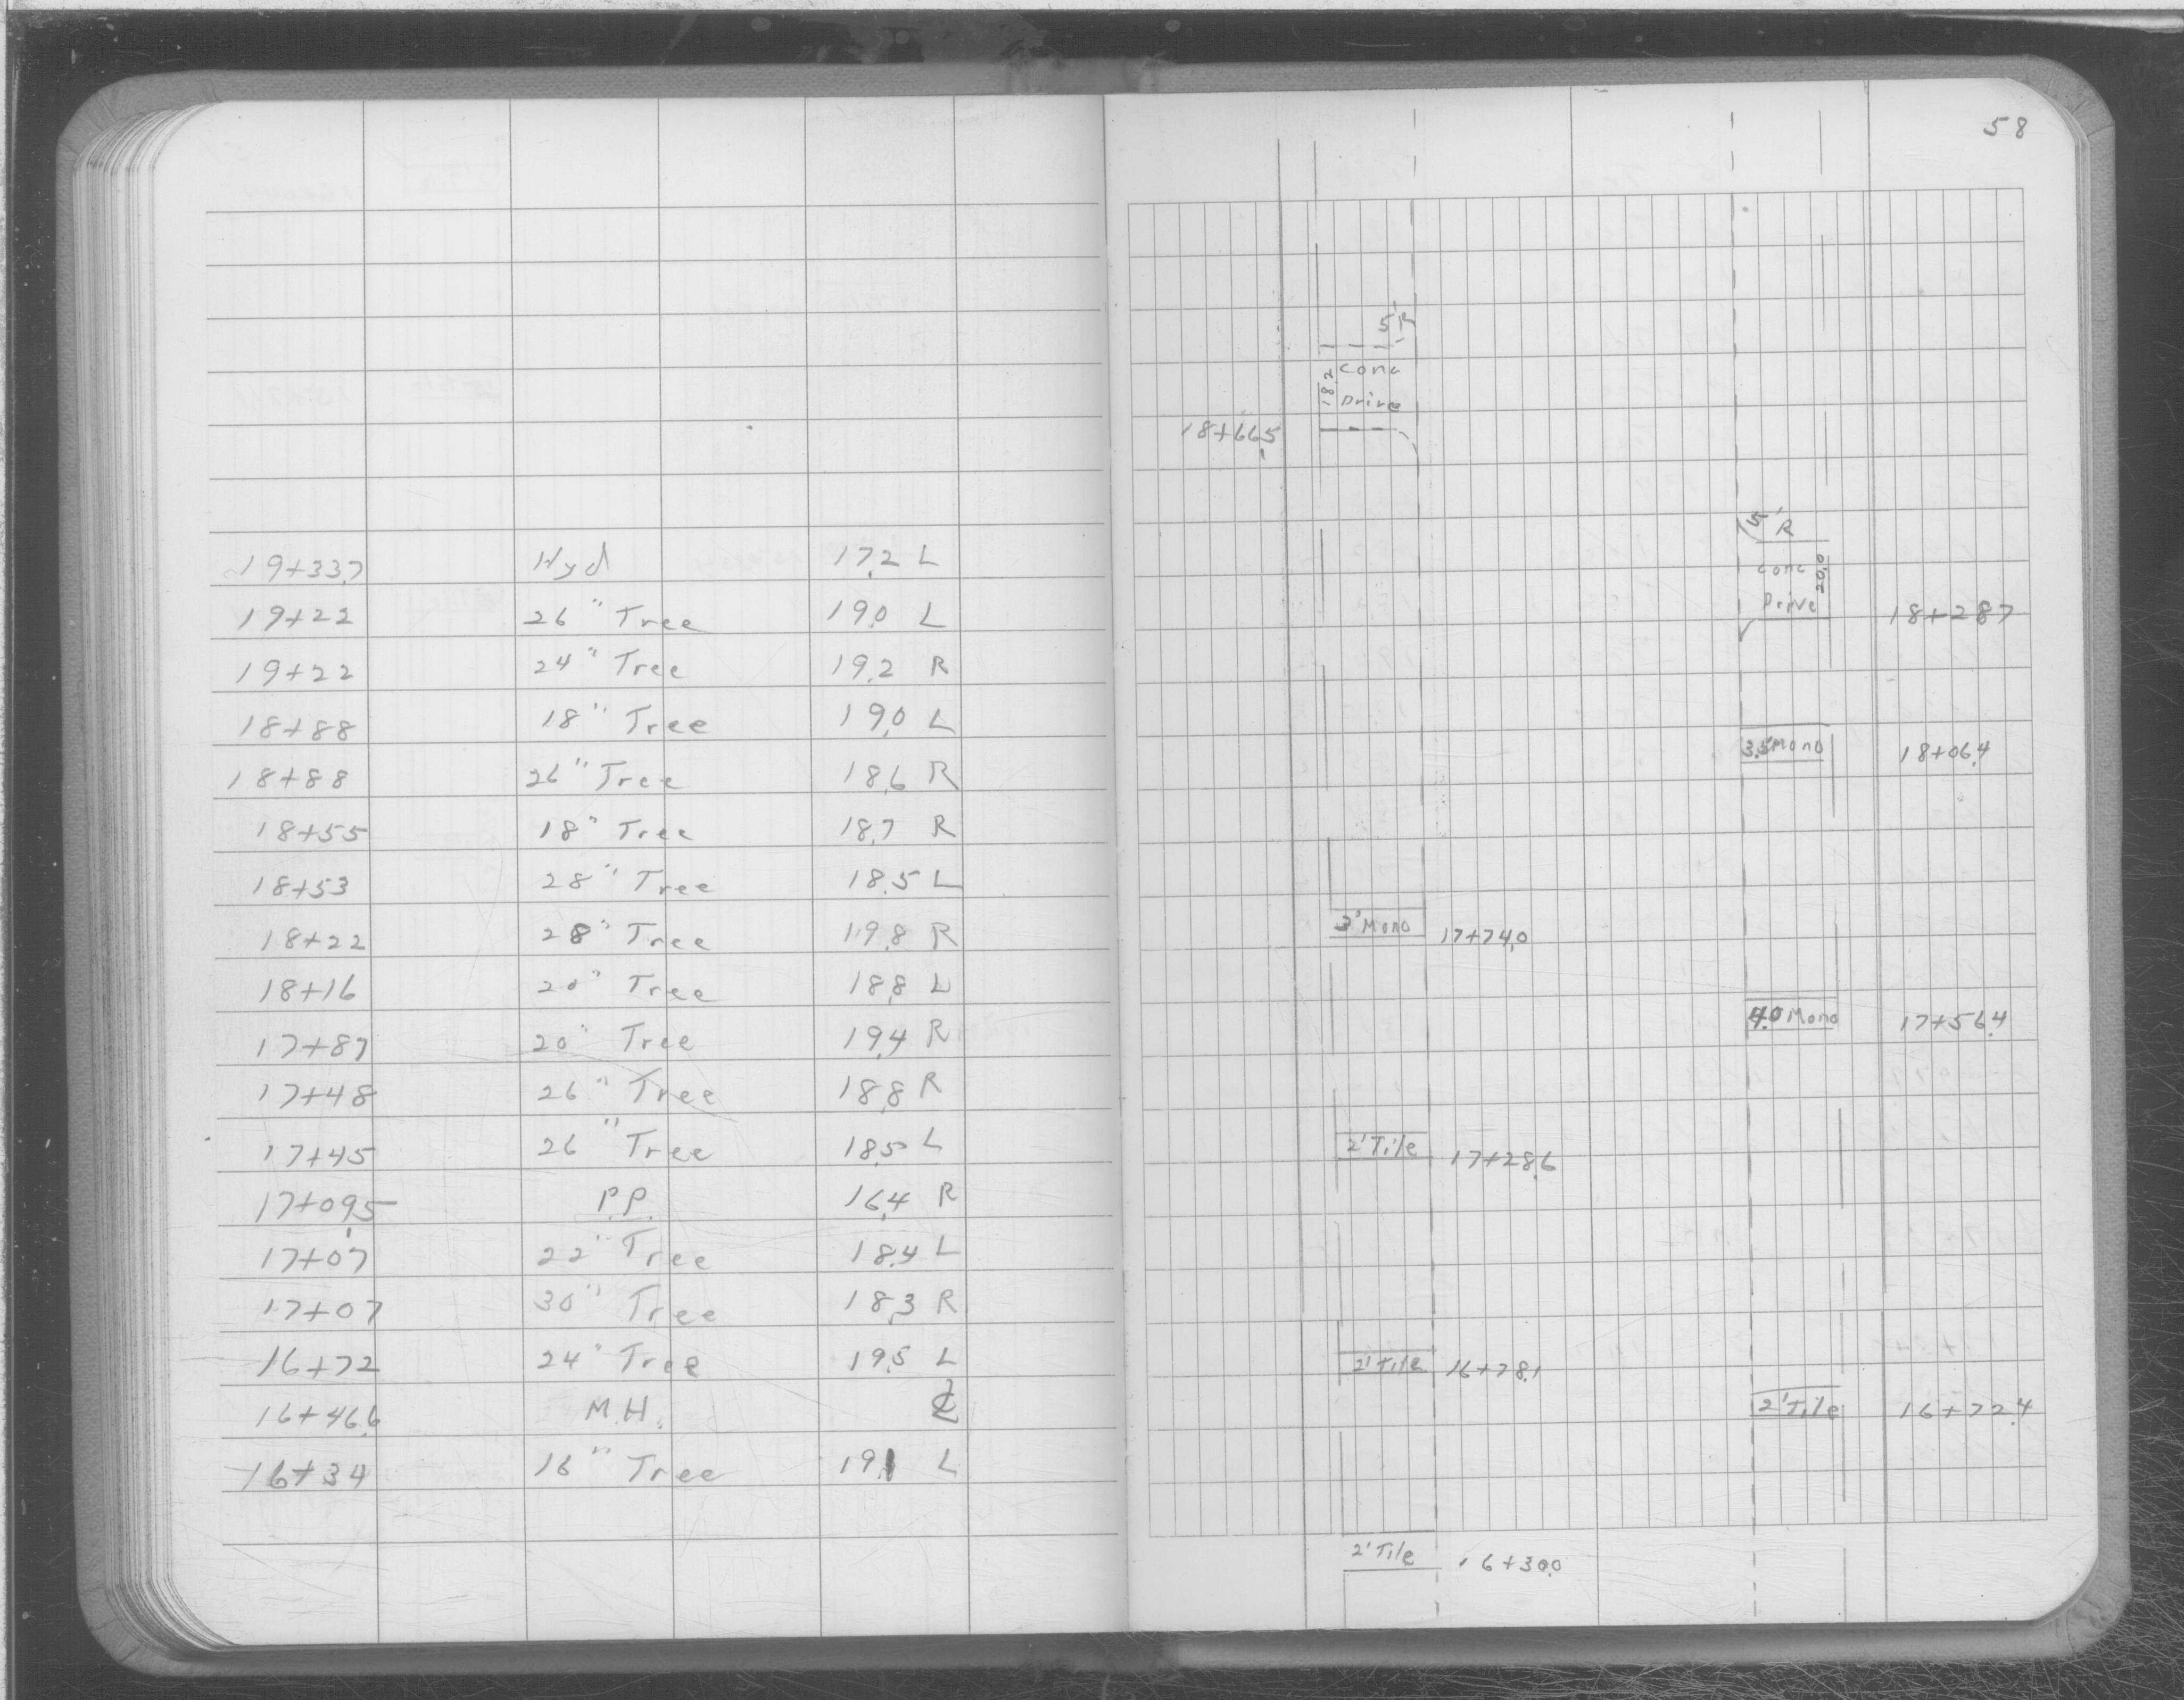 58
19+33.7 Hyd 17.2 L
19+22 26" Tree 19.0 L
19+22 24" Tree 19.2 R
18+88 18" Tree 19.0 L
18+88 26" Tree 18.6 R
18+55 18" Tree 18.7 R
18+53 28" Tree 18.5 L
18+22 28" Tree 19.8 R
18+16 20" Tree 18.8 L
17+87 20" Tree 19.4 R
17+48 26" Tree 18.8 R
17+45 26" Tree 18.5 L
17+09.5 P.P. 16.4 R
17+07 22" Tree 18.4 L
17+07 30" Tree 18.3 R
16+72 24" Tree 19.5 L
16+46.6 M.H. ℄
16+34 16" Tree 19.1 L
5'R
18.2 Conc
Drive
18+66.5
5'R
Conc 20.0
Drive 18+28.7
3.5' Mono 18+06.4
3' Mono 17+74.0
4.0 Mono 17+56.4
2' Tile 17+28.6
2' Tile 16+78.1
2' Tile 16+72.4
2' Tile 16+30.0